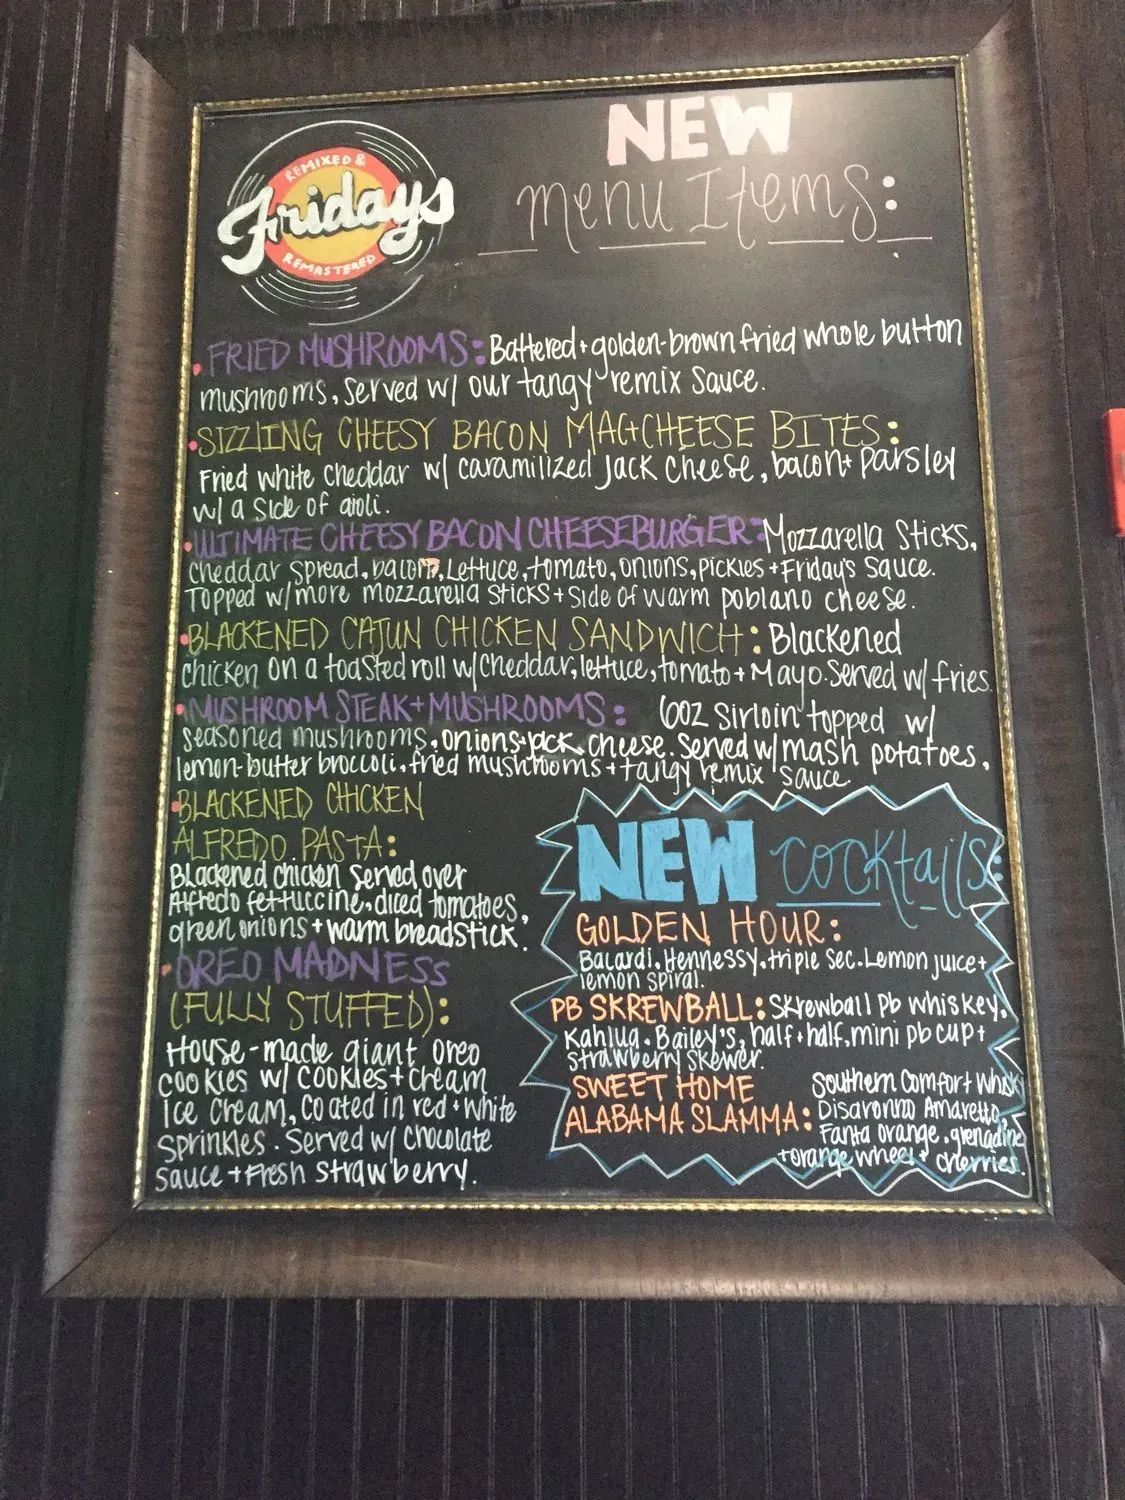 REMIXED &
Fridays
REMASTERED
NEW
menu Items:
FRIED MUSHROOMS: Battered + golden-brown fried whole button
mushrooms, served w/ our tangy remix sauce.
SIZZLING CHEESY BACON MAC+CHEESE BITES:
Fried white cheddar w/ caramilized Jack cheese, bacon + parsley
w/ a side of aioli.
ULTIMATE CHEESY BACON CHEESEBURGER: Mozzarella Sticks,
cheddar spread, bacon, Lettuce, tomato, onions, pickles + Friday's sauce.
Topped w/ more mozzarella sticks + side of warm poblano cheese.
BLACKENED CAJUN CHICKEN SANDWICH: Blackened
chicken on a toasted roll w/ cheddar, lettuce, tomato + Mayo. Served w/ fries.
MUSHROOM STEAK + MUSHROOMS: 6oz Sirloin topped w/
seasoned mushrooms, onions + jack cheese. Served w/ mash potatoes,
lemon-butter broccoli, fried mushrooms + tangy remix sauce
BLACKENED CHICKEN
ALFREDO PASTA:
Blackened chicken served over
Alfredo fettuccine, diced tomatoes,
green onions + warm breadstick.
OREO MADNESS
(FULLY STUFFED):
House-made giant oreo
cookies w/ cookies + cream
Ice cream, coated in red + white
sprinkles. Served w/ chocolate
sauce + Fresh strawberry.
NEW cocktails:
GOLDEN HOUR:
Bacardi, Hennessy, triple sec, Lemon juice +
lemon spiral.
PB SKREWBALL: Skrewball Pb whiskey,
Kahlua, Bailey's, half + half, mini pb cup +
strawberry skewer.
SWEET HOME
ALABAMA SLAMMA:
Southern Comfort Whisky
Disaronno Amaretto,
Fanta orange, grenadine
+ orange wheel + cherries.